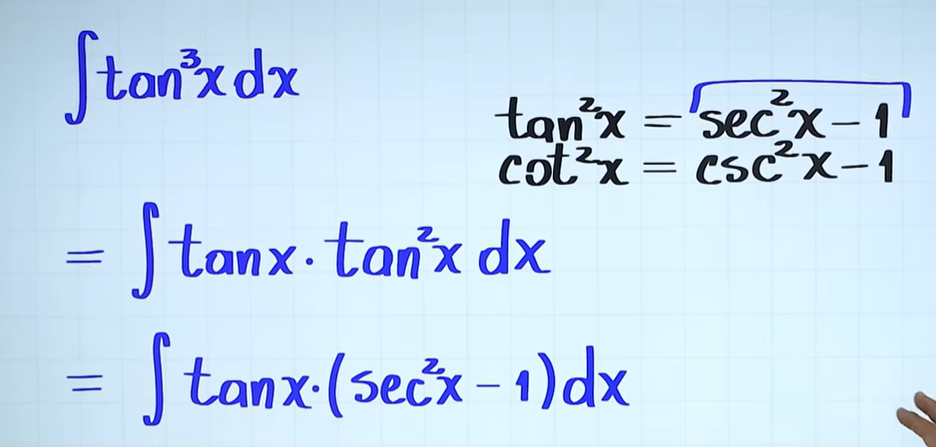 ∫tan³x dx
tan²x = sec²x − 1
cot²x = csc²x − 1
= ∫tanx · tan²x dx
= ∫tanx·(sec²x − 1)dx